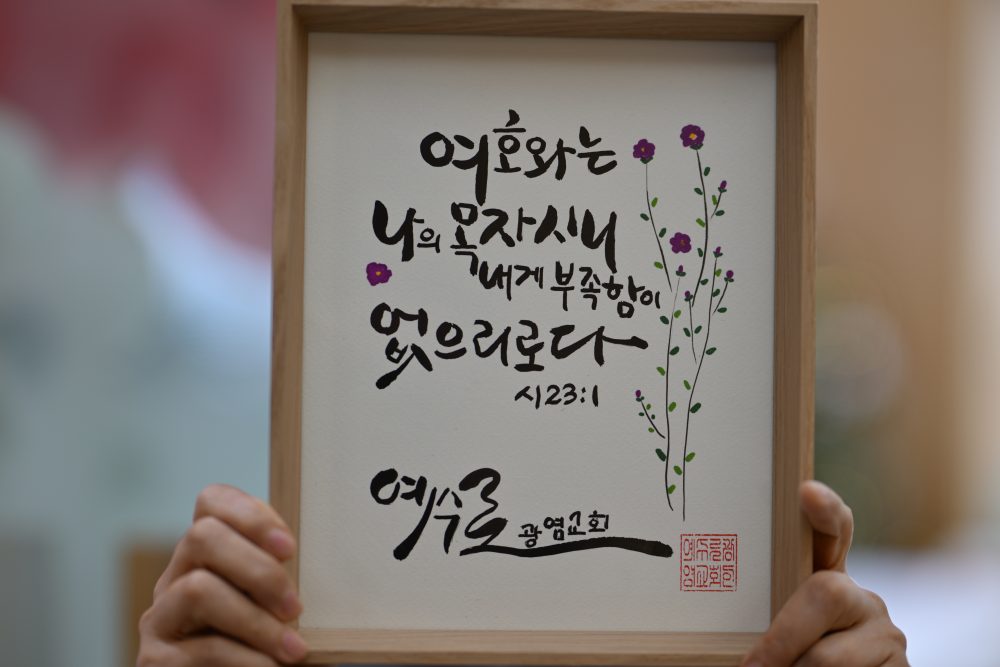 여호와는
나의 목자시니
내게 부족함이
없으리로다
시23:1
예수로 광염교회